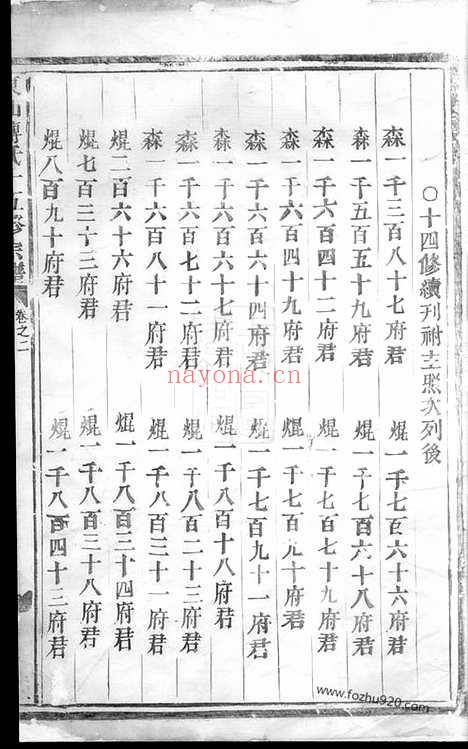 ○十四修續刋祔主照次列後
森一千三百八十七府君
焜一千七百六十六府君
森一千五百五十九府君
焜一千七百六十八府君
森一千六百四十二府君
焜一千七百七十九府君
森一千六百四十九府君
焜一千七百九十府君
森一千六百六十四府君
焜一千七百九十一府君
森一千六百六十七府君
焜一千八百十八府君
森一千六百七十二府君
焜一千八百二十三府君
森一千六百八十一府君
焜一千八百三十一府君
焜二百六十六府君
焜一千八百三十四府君
焜七百三十三府君
焜一千八百三十八府君
焜八百九十府君
焜一千八百四十三府君
山 氏十五修宗譜
卷之二
nayona.cn
www.fozhu920.com